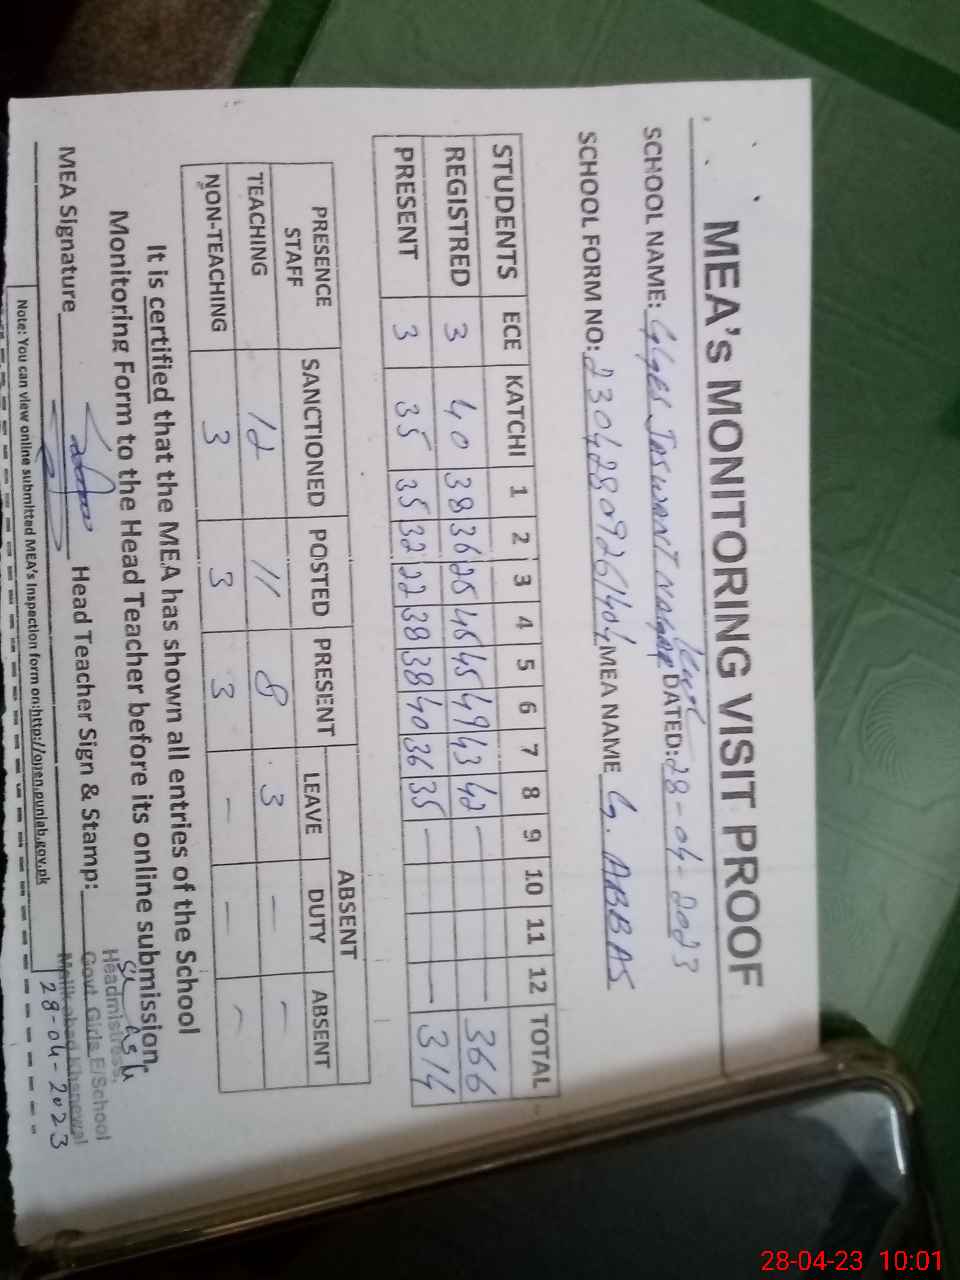 MEA's MONITORING VISIT PROOF
SCHOOL NAME: GGES Jaswant Nagar DATED: 28-04-2023
SCHOOL FORM NO: 23042809261404 MEA NAME G. ABBAS
STUDENTS ECE KATCHI 1 2 3 4 5 6 7 8 9 10 11 12 TOTAL
REGISTRED 3 40 38 36 25 45 45 49 43 42 — — 366
PRESENT 3 35 35 32 22 38 38 40 36 35 — — 314
PRESENCE STAFF SANCTIONED POSTED PRESENT ABSENT
LEAVE DUTY ABSENT
TEACHING 12 11 8 3 — —
NON-TEACHING 3 3 3 — — —
It is certified that the MEA has shown all entries of the School
Monitoring Form to the Head Teacher before its online submission.
MEA Signature Head Teacher Sign & Stamp:
Headmistress,
Govt. Girls E/School
Khanewal
28-04-2023
Note: You can view online submitted MEA's Inspection form on:http://open.punjab.gov.pk
28-04-23 10:01